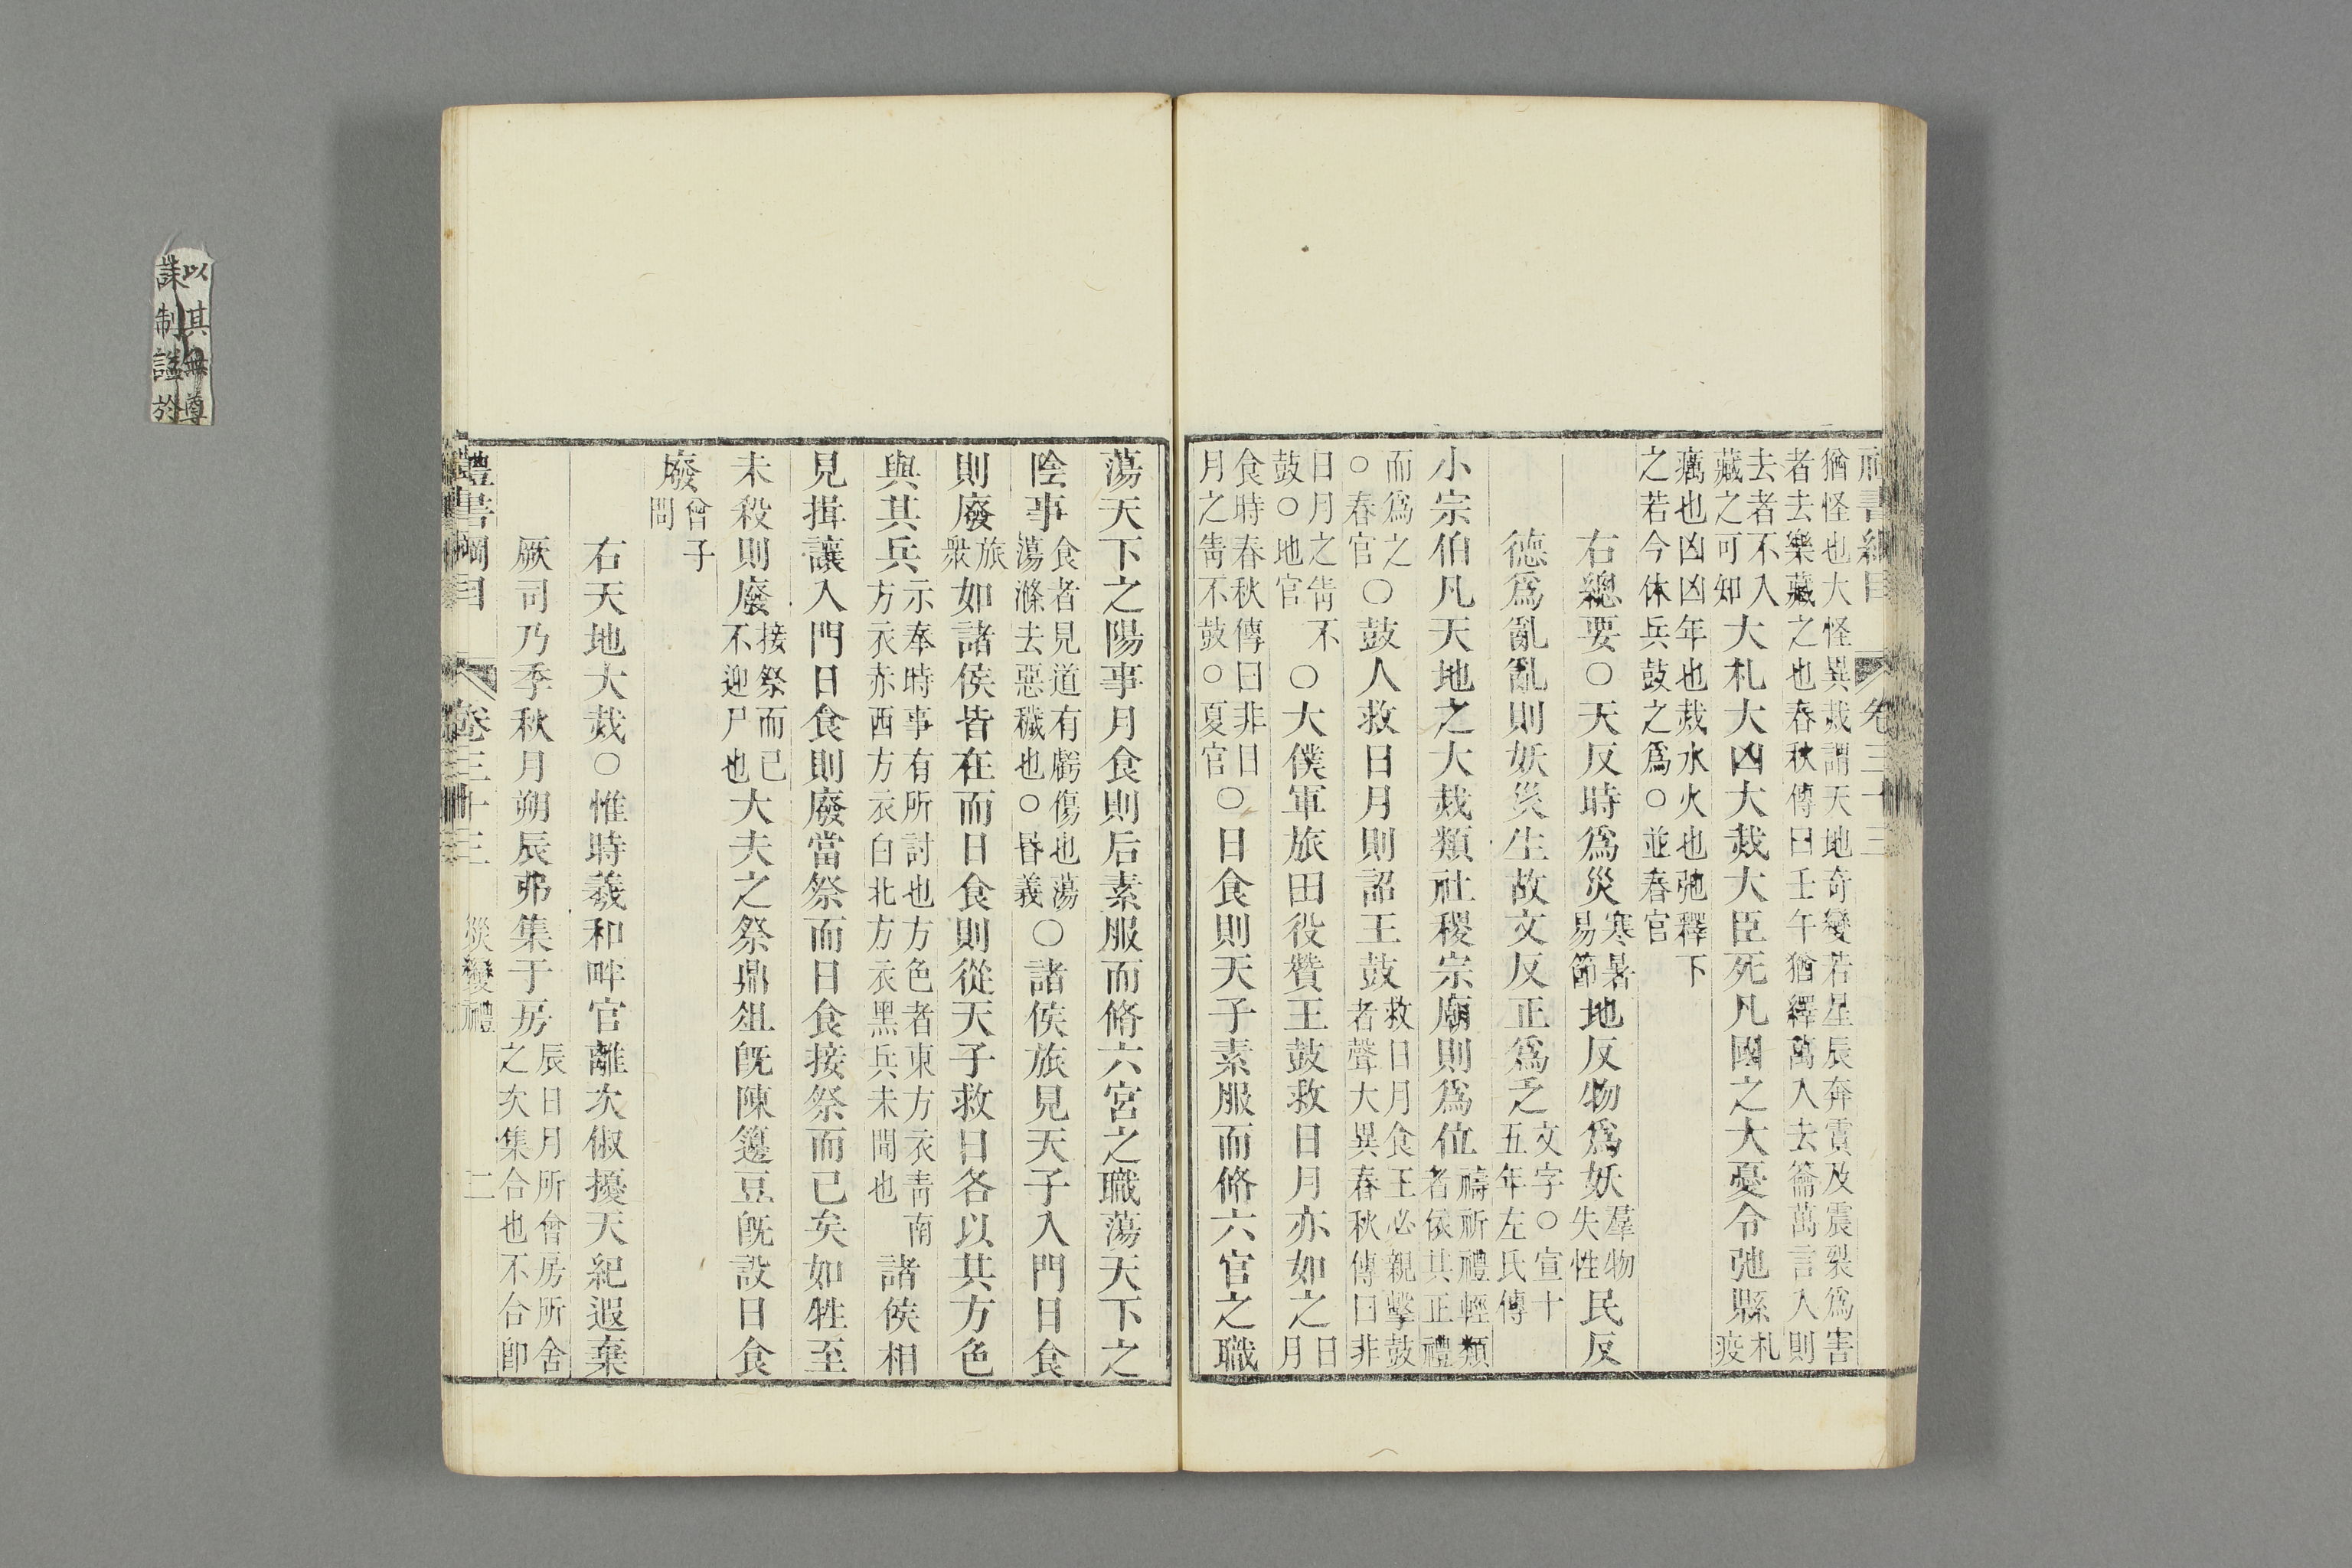 禮書綱目 卷三十三
猶怪也大怪異烖謂天地奇變若星辰奔霣及震裂爲害
者去樂藏之也春秋傳曰壬午猶繹萬入去籥萬言入則
去者不入
藏之可知
大札大凶大烖大臣死凡國之大憂令弛縣
札
疫
癘也凶凶年也烖水火也弛釋下
之若今休兵鼓之爲○並春官
右總要○天反時爲災
寒暑
易節
地反物爲妖
羣物
失性
民反
德爲亂亂則妖災生故文反正爲乏
文字○宣十
五年左氏傳
小宗伯凡天地之大烖類社稷宗廟則爲位
禱祈禮輕類
者依其正禮
而爲之
○春官
○鼓人救日月則詔王鼓
救日月食王必親擊鼓
者聲大異春秋傳曰非
日月之眚不
鼓○地官
○大僕軍旅田役贊王鼓救日月亦如之
日
月
食時春秋傳曰非日
月之眚不鼓○夏官
○日食則天子素服而脩六官之職
蕩天下之陽事月食則后素服而脩六宮之職蕩天下之
陰事
食者見道有虧傷也蕩
蕩滌去惡穢也○昏義
○諸侯旅見天子入門日食
則廢
旅
衆
如諸侯皆在而日食則從天子救日各以其方色
與其兵
示奉時事有所討也方色者東方衣靑南
方衣赤西方衣白北方衣黑兵未聞也
諸侯相
見揖讓入門日食則廢當祭而日食接祭而已矣如牲至
未殺則廢
接祭而已
不迎尸也
大夫之祭鼎俎旣陳籩豆旣設日食
廢
曾子
問
右天地大烖○惟時羲和畔官離次俶擾天紀遐棄
厥司乃季秋月朔辰弗集于房
辰日月所會房所舍
之次集合也不合卽
禮書綱目 卷三十三 災變禮 二
以其無尊
誄制謚於